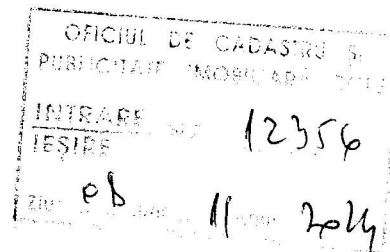 OFICIUL DE CADASTRU ȘI
PUBLICITATE IMOBILIARĂ
INTRARE 12356
IEȘIRE
ZIUA 11 2014